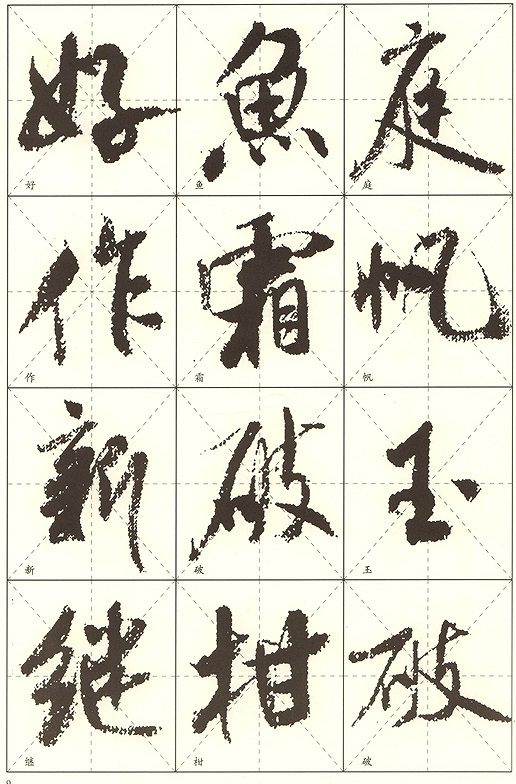 庭
庭
帆
帆
玉
玉
破
破
魚
鱼
霜
霜
破
破
柑
柑
好
好
作
作
新
新
継
继